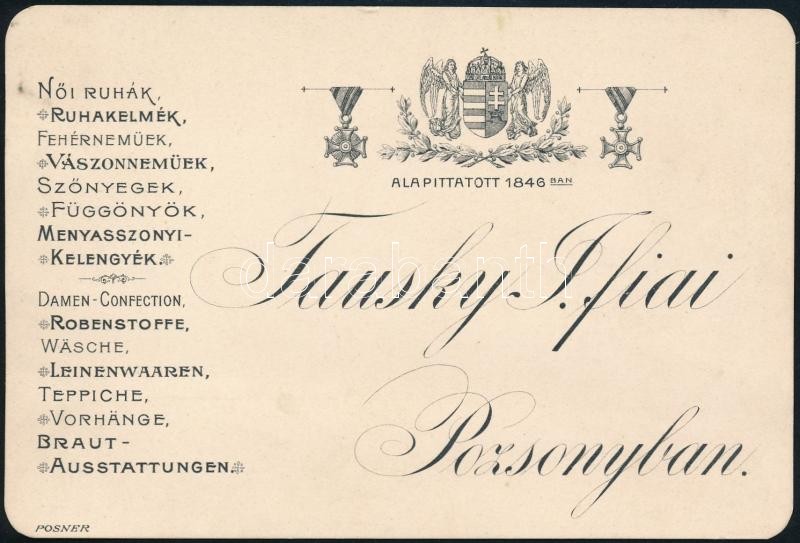 NŐI RUHÁK,
RUHAKELMÉK,
FEHÉRNEMÜEK,
VÁSZONNEMÜEK,
SZŐNYEGEK,
FÜGGÖNYÖK,
MENYASSZONYI-
KELENGYÉK.
DAMEN-CONFECTION,
ROBENSTOFFE,
WÄSCHE,
LEINENWAAREN,
TEPPICHE,
VORHÄNGE,
BRAUT-
AUSSTATTUNGEN.
POSNER
ALAPITTATOTT 1846 BAN
Tausky J. fiai
Pozsonyban.
darabanth